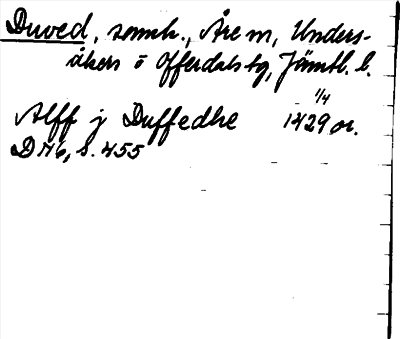 Duved, samh., Åre sn, Unders-
åkers o Offerdals tg, Jämtl. l.
Alff j Duffedhe 1/4 1429 or.
DMb, s. 455